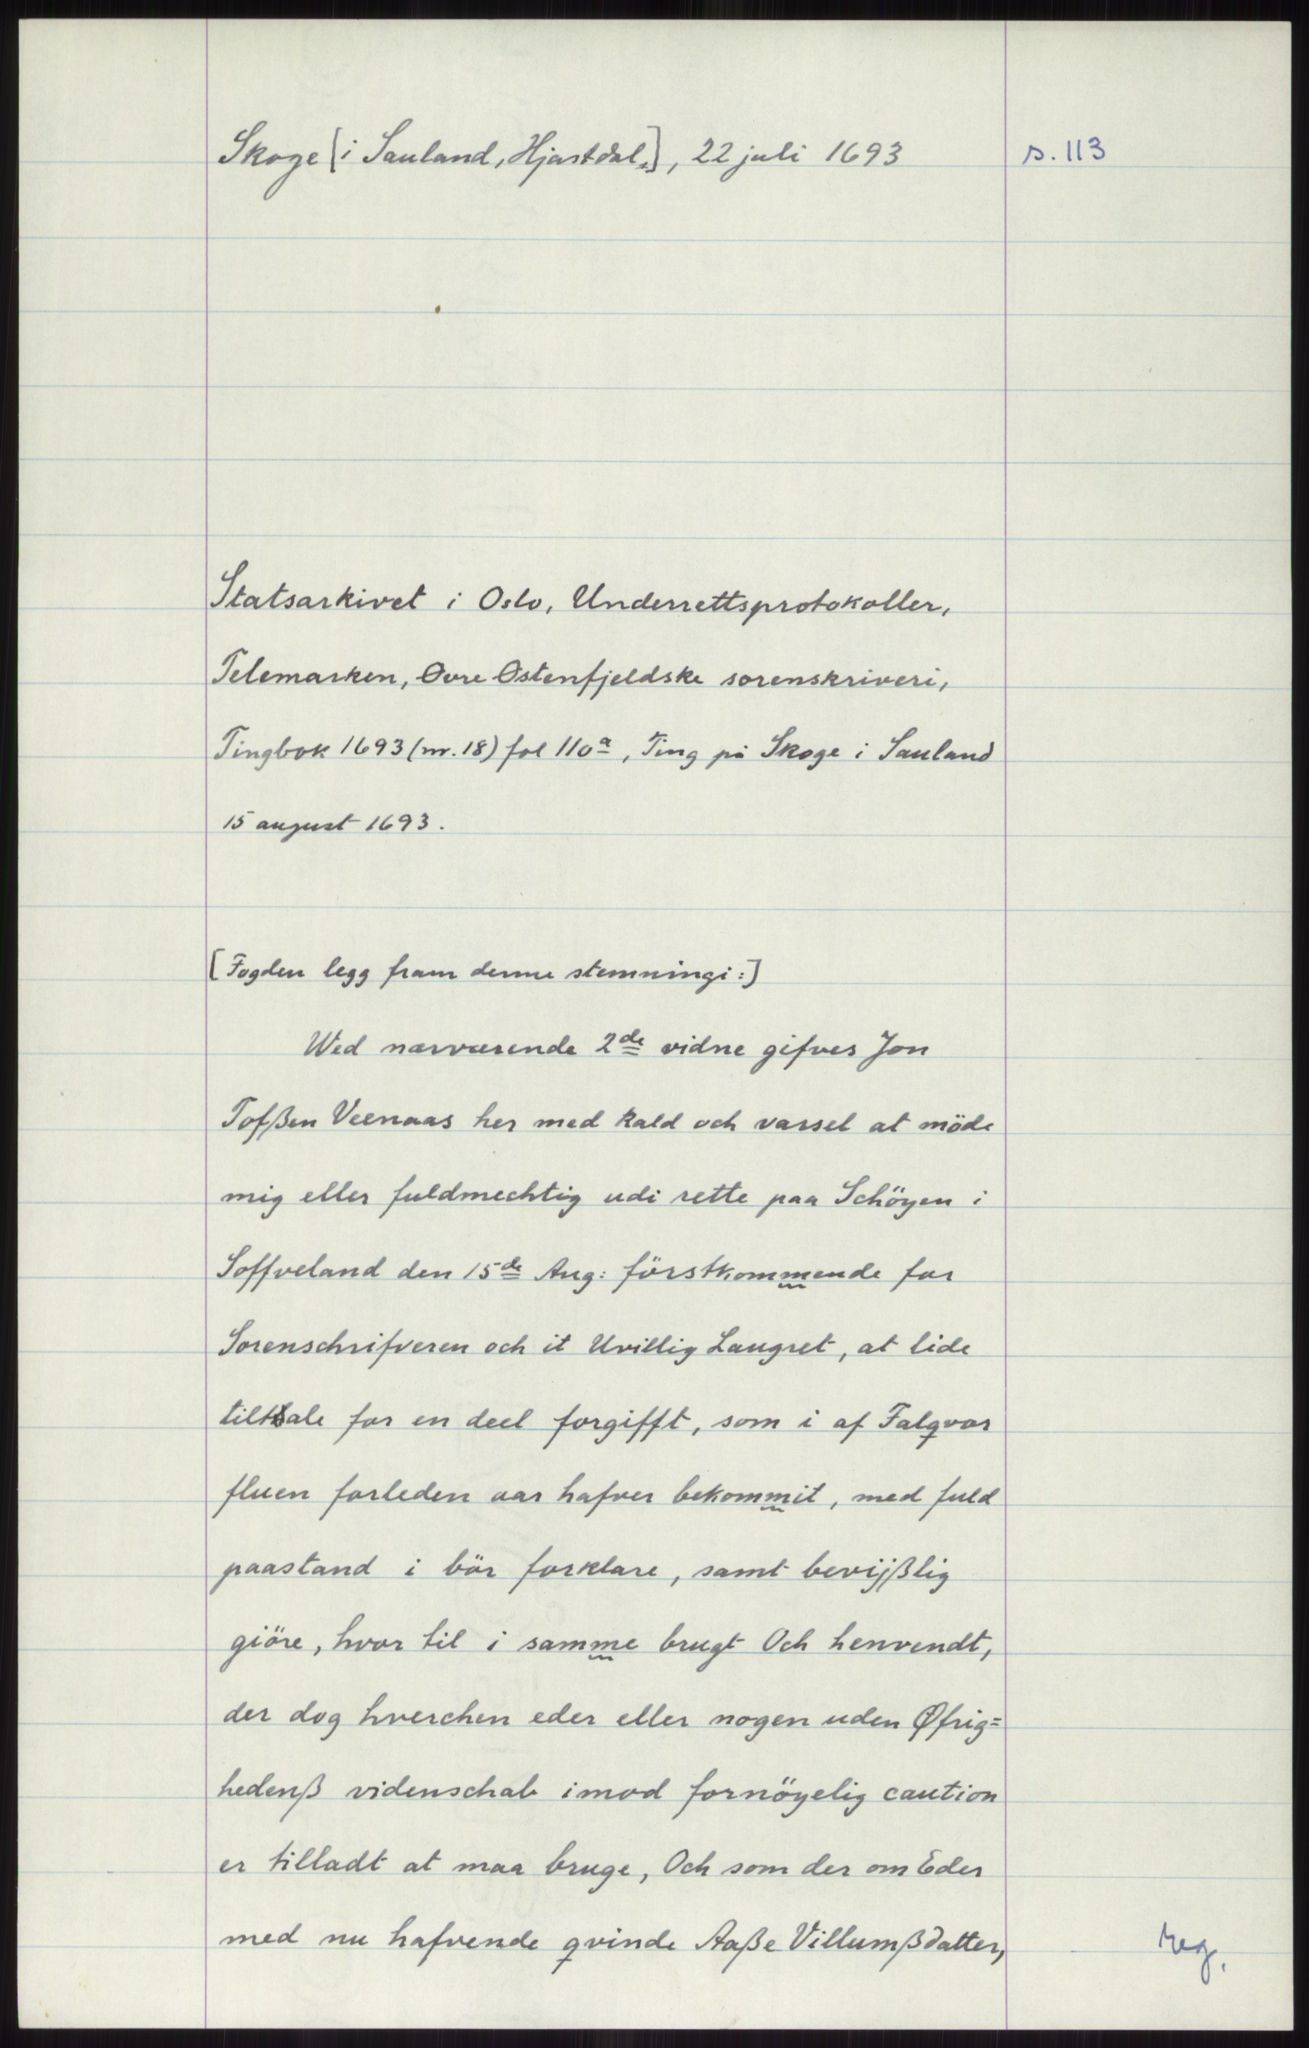 Skoge [i Sauland, Hjartdal.], 22 juli 1693
s. 113
Statsarkivet i Oslo, Underrettsprotokoller,
Telemarken, Øvre Østenfjeldske sorenskriveri,
Tingbok 1693 (nr. 18) fol 110a, Ting på Skoge i Sauland
15 august 1693.
[Fogden legg fram denne stemningi:]
Wed nærværende 2de vidne gifves Jon
Tofßen Veenaas her med kald och varsel at möde
mig eller fuldmechtig udi rette paa Schöyen i
Soffveland den 15de Aug: förstkommende for
Sorenschrifveren och it Uvillig Laugret, at lide
tiltale for en deel forgifft, som i af Falqvor
fluen forleden aar hafver bekommit, med fuld
paastand i bör forklare, samt bevijßlig
giöre, hvor til i samme brugt Och henvendt,
der dog hverchen eder eller nogen uden Øfrig=
hedenß videnschab imod fornöyelig caution
er tilladt at maa bruge, Och som der om Eder
med nu hafvende qvinde Aaße Villumßdatter,
reg.